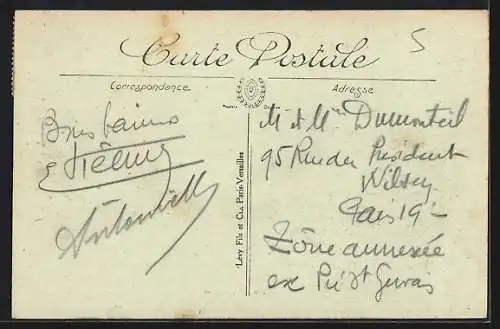 5
Carte Postale
Correspondance
Adresse
Bons baisers
Antoinette
Lévy Fils et Cie, Paris-Versailles
M et Mme Dumonteil
95 Rue du Président
Wilson
Paris 19e
Zône annexée
ex Pré St Gervais